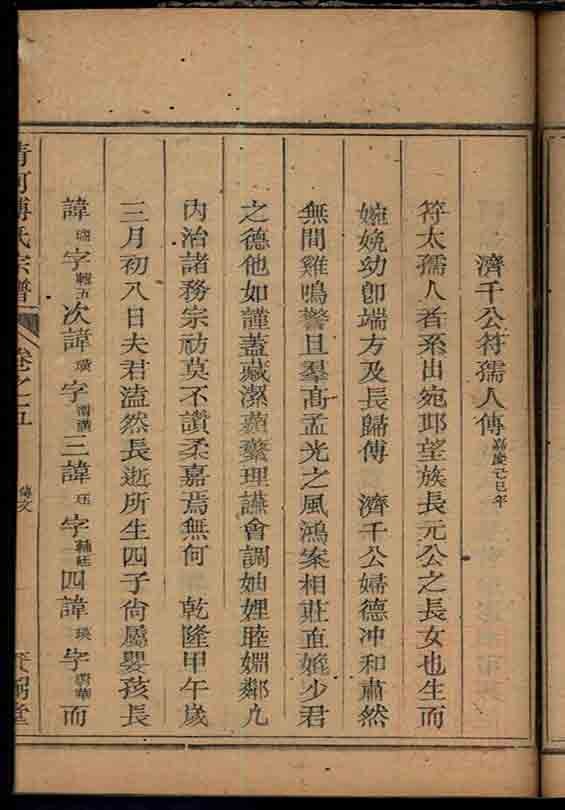 濟千公符孺人傳嘉慶己巳年
符太孺人者系出宛邱望族長元公之長女也生而
婉娩幼卽端方及長歸傅 濟千公婦德冲和肅然
無間雞鳴警旦羣高孟光之風鴻案相莊直媲少君
之德他如謹蓋藏潔蘋蘩理讌會調妯娌睦婣鄰凡
內治諸務宗祊莫不讚柔嘉焉無何 乾隆甲午歲
三月初八日夫君溘然長逝所生四子尙屬嬰孩長
諱 字 五次諱璜字 三諱珏字輔廷四諱瑛字 華而
清河傅氏宗譜 卷之五 傳文